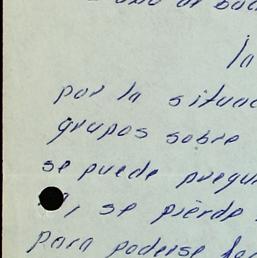 la
por la situac
grupos sobre
se puede pregu
, se pierde
para poderse